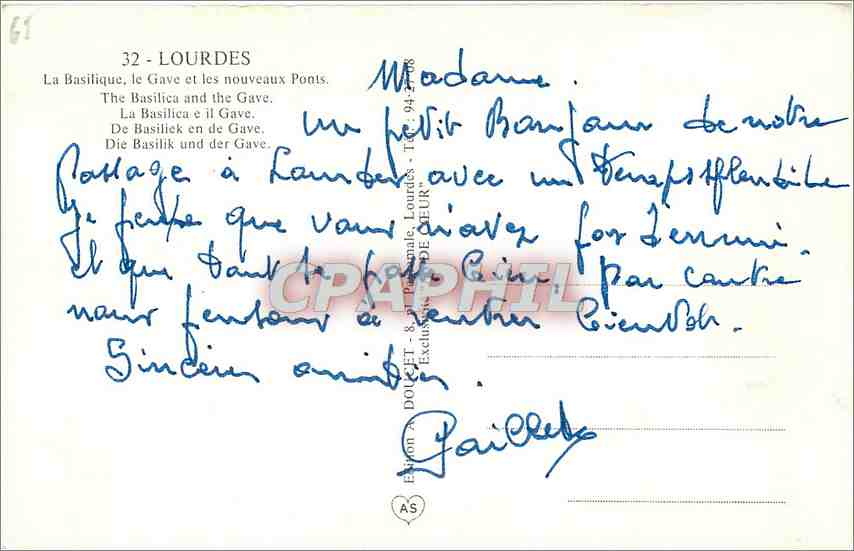 61
32 - LOURDES
La Basilique, le Gave et les nouveaux Ponts.
The Basilica and the Gave.
La Basilica e il Gave.
De Basiliek en de Gave.
Die Basilik und der Gave.
Madame.
un petit Bonjour de notre
passage à Lourdes avec un Temps splendide
je pense que vous n'avez pas terminé.
et que tout se passe bien. par contre
nous pensons à rentrer bientôt.
Sincères amitiés.
Edition A. DOUCET - 8, Lourdes - Tél. : 94-27-08
CPARHIL
AS